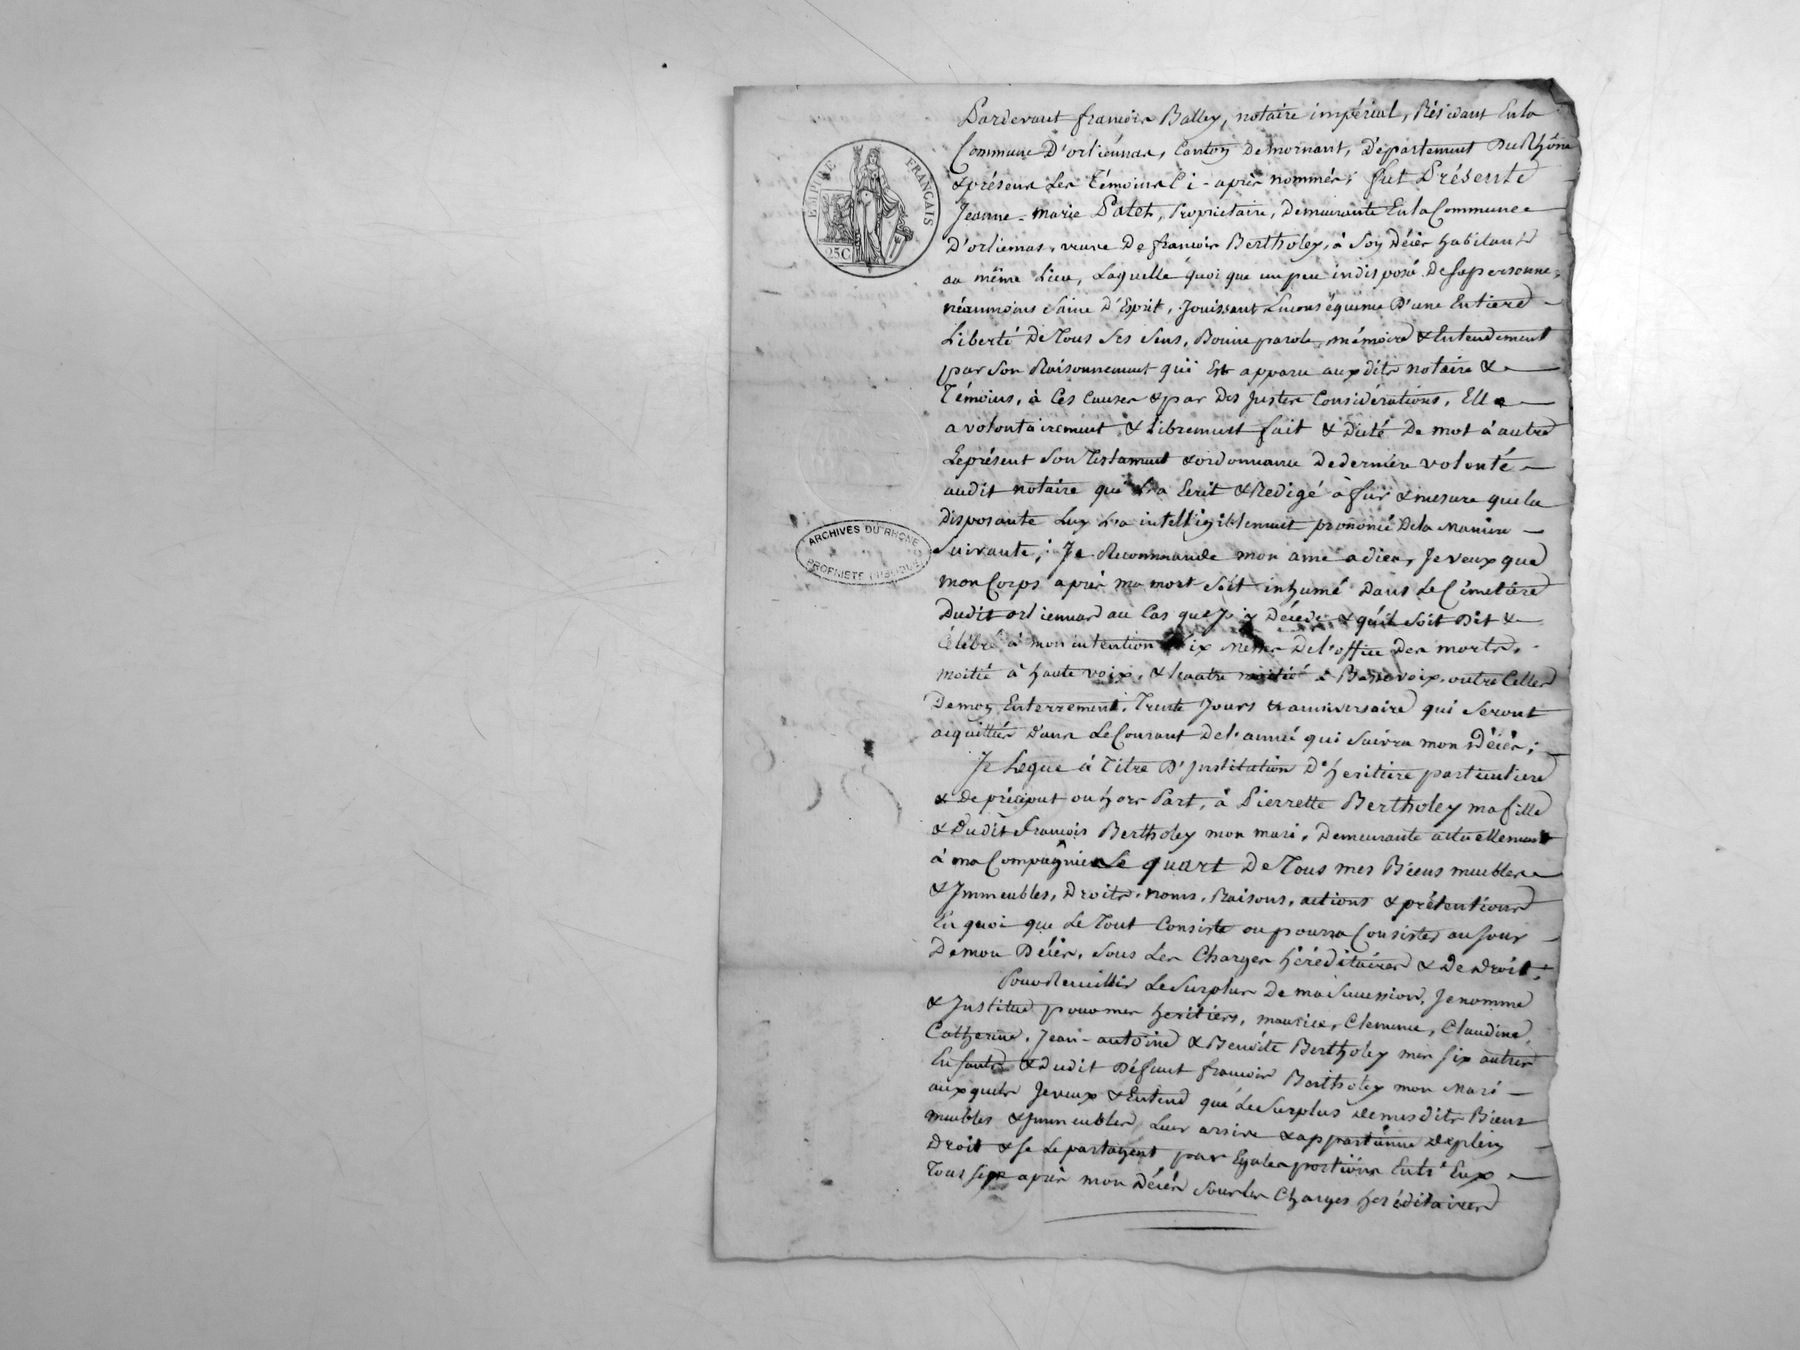 EMPIRE FRANÇAIS
25C
ARCHIVES DU RHÔNE
PROPRIETE PUBLIQUE
Pardevant françois Balley, notaire impérial, Résidant En la
Commune D'orliénnas, Canton De mornant, Département Du Rhône
& présens Les Témoins Ci-après nommés; fut Présente
Jeanne-marie Patet, Propriétaire, Demeurante En la Commune
D'orlienas, veuve De françois Bertholey, à Son Décès habitant
au même Lieu, Laquelle quoi que un peu indisposé De sa personne,
néanmoins Saine D'Esprit, Jouissant Enconséquence D'une Entiere
Liberté De Tous Ses Sens, Bonne parole, mémoire & Entendement
par Son Raisonnement qui Est apparu auxdits notaire &
Témoins, à Ces Causes & par Des Justes Considérations, Elle
a volontairement & Librement fait & Dicté De mot à autre
Le présent Son Testament & ordonnance De derniere volonté
audit notaire qui L'a Ecrit & Redigé à fur & mesure que la
Disposante Luy L'a intelligiblement prononcé De la Maniere
Suivante; Je Recommande mon ame a dieu, Je veux que
mon Corps après ma mort Soit inhumé Dans Le Cimetiere
Dudit orliennas au Cas que J'y Décede & qu'il Soit Dit &
Célébré à mon intention Dix Messes De l'office Des morts,
moitié à haute voix, & L'autre moitié à Basse voix, outre Celles
De mon Enterrement, Trente Jours & anniversaire qui Seront
acquittés Dans Le Courant De l'année qui Suivra mon Décès;
Je Legue à Titre D'Institution D'heritiere particuliere
& De préciput ou hors Part, à Pierrette Bertholey ma fille
& Dudit françois Bertholey mon mari, Demeurante actuellement
à ma Compagnie Le quart De Tous mes Biens meubles
& Immeubles, Droits, noms, Raisons, actions & prétentions
En quoi que Le Tout Consiste ou pourra Consister au Jour
De mon Décès, Sous Les Charges héréditaires & De Droit;
Pour Recuillir Le Surplus De ma Succession, Je nomme
& Institue pour mes heritiers, maurice, Clemence, Claudine,
Catherine, Jean-antoine & Benoite Bertholey mes six autres
Enfants & Dudit Défunt françois Bertholey mon Mari
auxquels Je veux & Entend que Le Surplus De mesdits Biens
meubles & Immeubles Leur arrive & appartienne De plein
Droit & se Le partagent par Egales portions Entr'Eux
Tous six après mon Décès Sous les Charges héréditaires